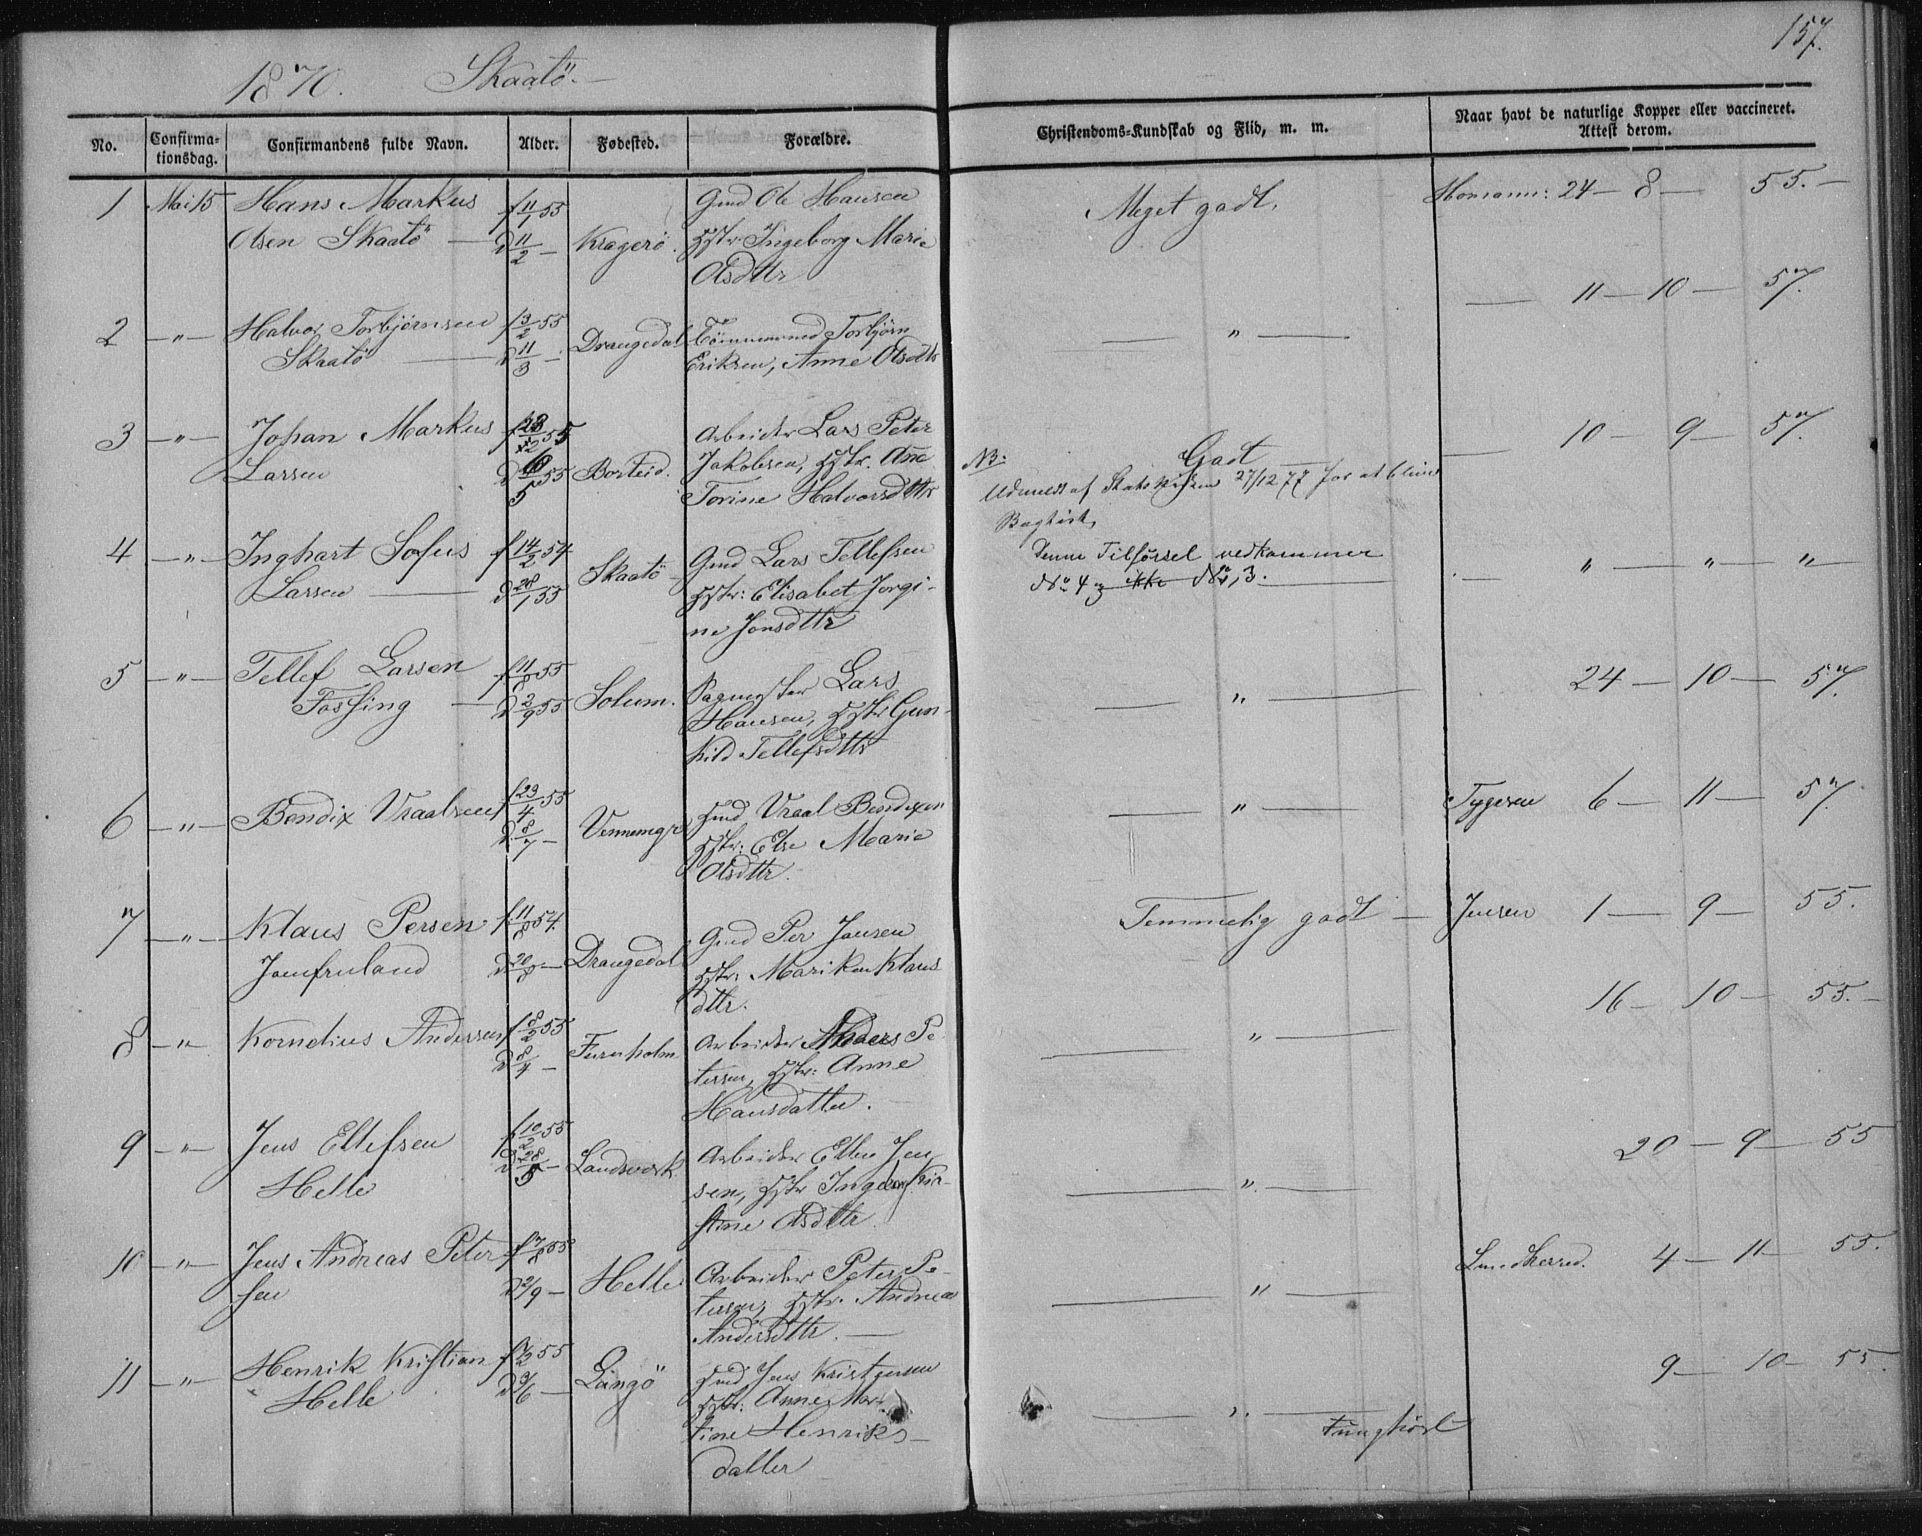 157.
1870. Skaatö.
No.
Confirma-
tionsdag.
Confirmandens fulde Navn.
Alder.
Fødested.
Forældre.
Christendoms-Kundskab og Flid, m. m.
Naar havt de naturlige Kopper eller vaccineret.
Attest derom.
1 Mai 15 Hans Markus
Olsen Skaatö
f 11/1 55
d 11/2 —
Kragerö.
Gmd Ole Hansen
Hstr. Ingeborg Marie
Olsdttr
Meget godt.
Homann: 24 — 8 — 55. —
2 — " — Halvor Torbjörnsen
Skaatö —
f 3/2 55
d 11/3 —
Drangedal
Tömmermd Torbjörn
Eriksen, Anne Olsdttr
— " —
— 11 — 10 — 57.
3 — " — Johan Markus
Larsen
55
d 6/5 55
Arbeider Lars Peter
Jakobsen, Hstr. Ane
Torine Halvorsdttr
NB: Godt
Udmeldt af Statskirken 27/12 77 for at blive
Baptist,
— 10 — 9 — 57.
4 — " — Inghart Sofus
Larsen —
f 14/2 54
d 28/1 55
Skaatö —
Gmd Lars Tellefsen
Hstr: Elisabet Jorgi-
ne Jonsdttr
Denne Tilførsel vedkommer
No 4 og ikke No 3. —
— " — " — "
5 — " — Tellef Larsen
Fossing —
f 11/8 55
d 2/9 55
Solum.
Lars
Hansen, Hstr Gun-
hild Tellefsdttr
— " —
24 — 10 — 57.
6 — " — Bendix Vraalsen
f 23/4 55
d 8/7 —
Gmd Vraal Bendixen
Hstr: Else Marie
Olsdttr.
— " —
Tygesen 6 — 11 — 57.
7 — " — Klaus Persen
Jomfruland
f 11/8 54.
d 20/8 —
Drangedal
Gmd Per Jansen
Hstr: Mariken Klaus
dttr.
Temmelig godt —
Jensen 1 — 9 — 55.
8 — " Kornelius Andersen
f 8/2 55
d 8/4 —
Furuholm
Arbeider Anders Pe-
tersen, Hstr: Anne
Hansdatter.
— " —
16 — 10 — 55. —
9 — " Jens Ellefsen
Helle
f 10/2 55
d 28/5 —
Landsverk
Arbeider Ellev Jen
sen, Hstr Ingeborg Kir-
stine Olsdttr.
— " —
20 — 9 — 55
10 — " Jens Andreas Peter
sen
f 7/8 55
d 2/9 —
Helle
Arbeider Peter Pe-
tersen, Hstr. Andrea
Andersdttr. —
— " —
4 — 11 — 55.
11 — " — Henrik Kristian
Helle
f 7/2 55
d 3/6 —
Langö
Gmd Jens Kristensen
Hstr: Anne Mar-
tine Henriks-
datter
— " —
Tunghört
9 — 10 — 55.